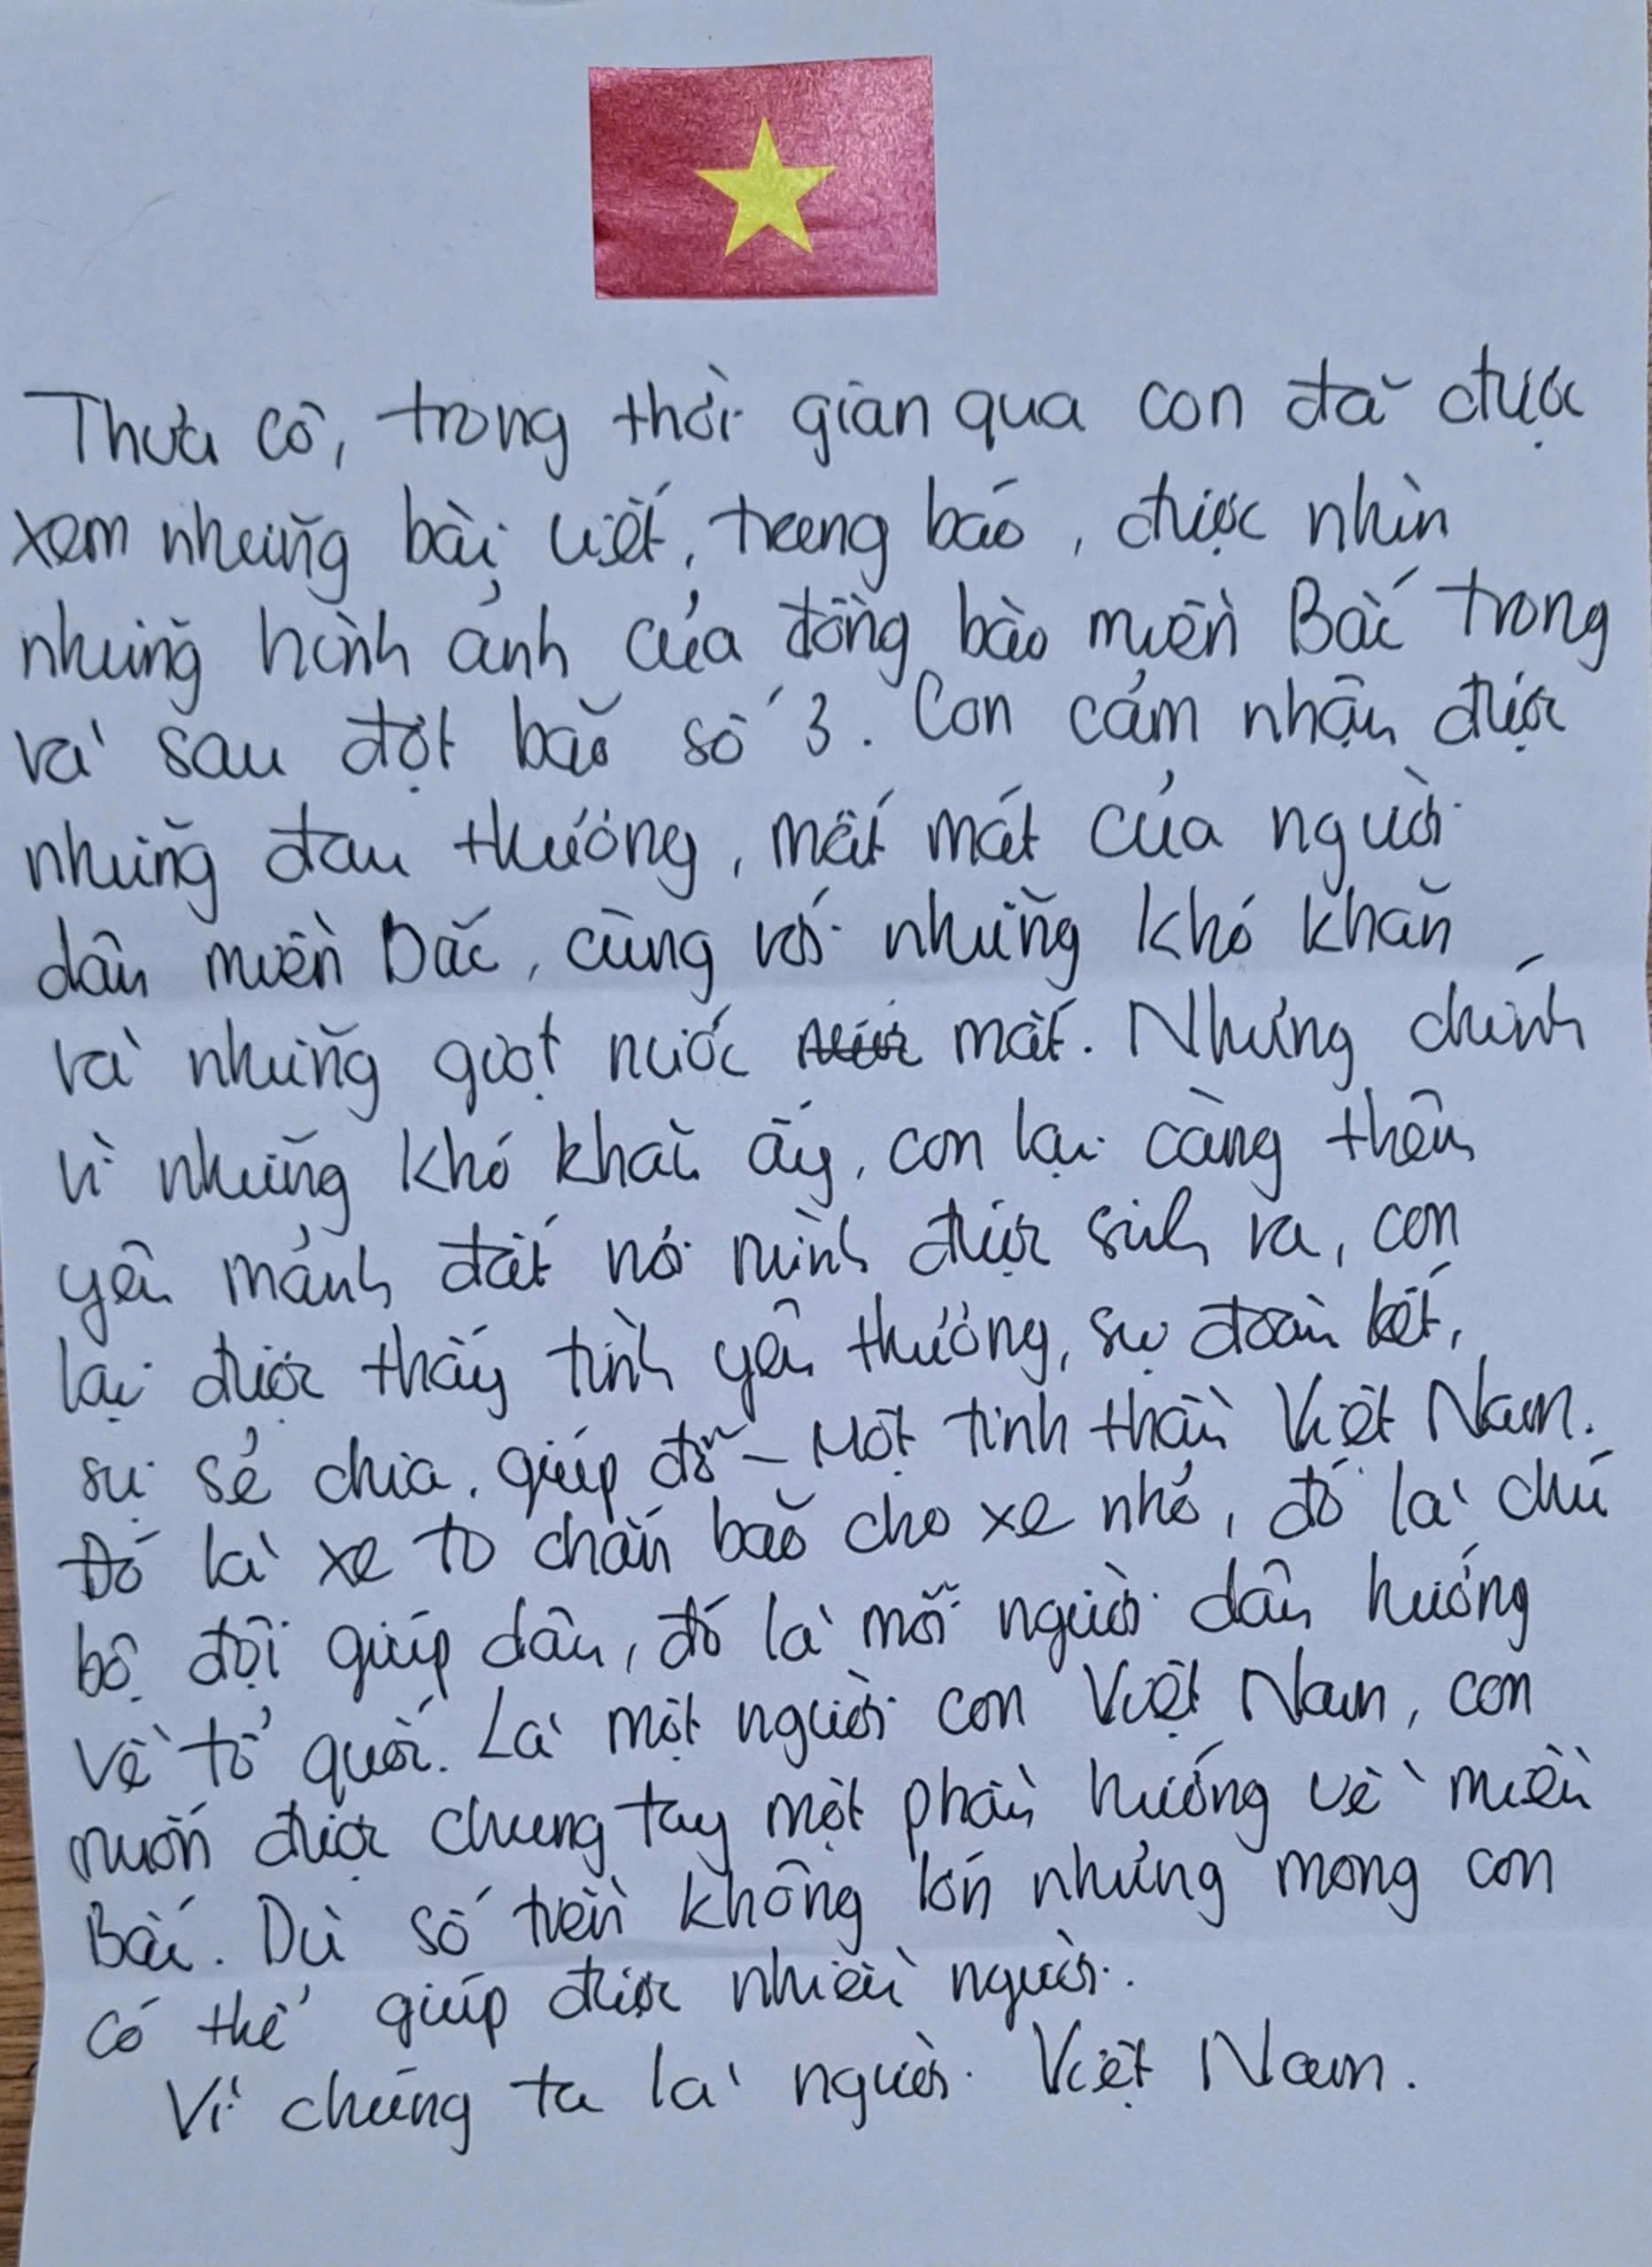 Thưa cô, trong thời gian qua con đã được
xem những bài viết, trang báo, được nhìn
những hình ảnh của đồng bào miền Bắc trong
và sau đợt bão số 3. Con cảm nhận được
những đau thương, mất mát của người
dân miền Bắc, cùng với những khó khăn
và những giọt nước mắt. Nhưng chính
vì những khó khăn ấy, con lại càng thêm
yêu mảnh đất nơi mình được sinh ra, con
lại được thấy tình yêu thương, sự đoàn kết,
sự sẻ chia, giúp đỡ - Một tinh thần Việt Nam.
Đó là xe to chắn bão cho xe nhỏ, đó là chú
bộ đội giúp dân, đó là mỗi người dân hướng
về tổ quốc. Là một người con Việt Nam, con
muốn được chung tay một phần hướng về miền
Bắc. Dù số tiền không lớn nhưng mong con
có thể giúp được nhiều người.
Vì chúng ta là người Việt Nam.